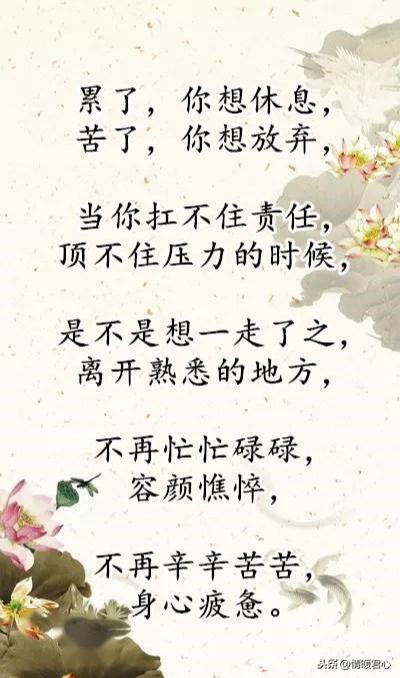 累了，你想休息，
苦了，你想放弃，
当你扛不住责任，
顶不住压力的时候，
是不是想一走了之，
离开熟悉的地方，
不再忙忙碌碌，
容颜憔悴，
不再辛辛苦苦，
身心疲惫。
头条 @情暖君心